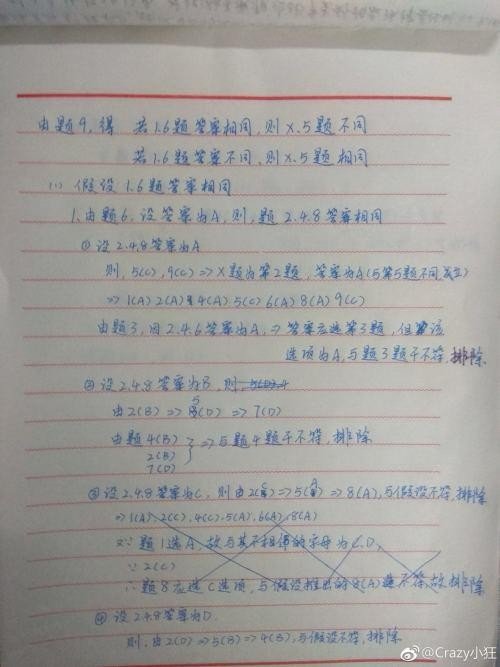 由题9,得 若1.6题答案相同,则X.5题不同
若1.6题答案不同,则X.5题相同
(1) 假设1.6题答案相同
1.由题6,设答案为A,则,题2.4.8答案相同
① 设2.4.8答案为A
则,5(C),9(C)=>X题为第2题,答案为A(与第5题不同,成立)
=>1(A)2(A)4(A)5(C)6(A)8(A)9(C)
由题3,因2.4.6答案为A,=>答案应选第3题,但该
选项为A,与题3题干不符,排除
② 设2.4.8答案为B,则,
由2(B)=>5(D)=>7(D)
由题4(B)
2(B)
7(D)
=>与题4题干不符,排除
③设2.4.8答案为C,则由2(C)=>5(A)=>8(A),与假设不符,排除
=>1(A),2(C),4(C),5(A),6(A),8(A)
又∵题1选A,故与其不相邻的字母为C.D,
∵2(C)
∴题8应选C选项,与假设推出的8(A)选不符,故排除
④ 设2.4.8答案为D
则,由2(D)=>5(B)=>4(B),与假设不符,排除
@Crazy小狂